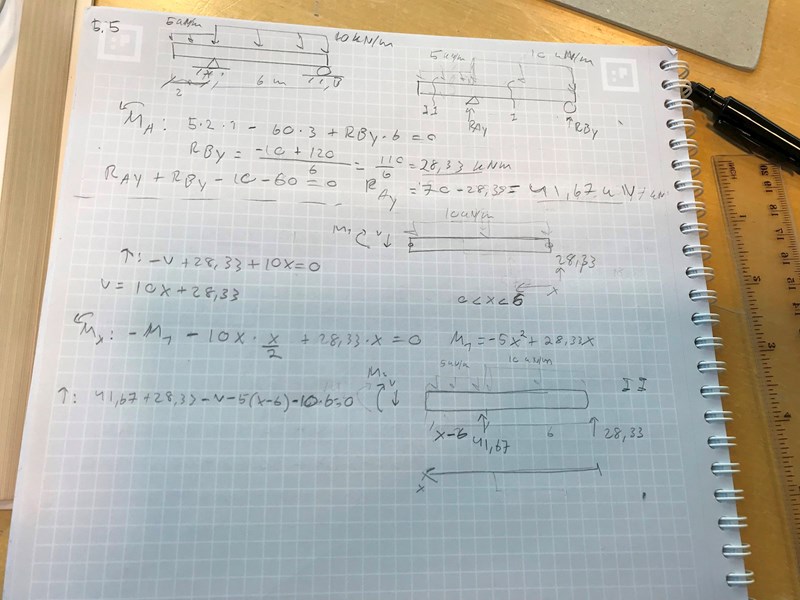 5,5
5 kN/m
10 kN/m
2
6 m
5 kN/m
10 kN/m
II
RAy
I
RBy
MA: 5·2·1 - 60·3 + RBy·6 = 0
RBy = -10 + 180 / 6 = 170 / 6 = 28,33 kNm
RAy + RBy - 10 - 60 = 0 RAy = 70 - 28,33 = 41,67 kN
10 kN/m
M1 V
28,33
x
0 < x < 6
↑: -V + 28,33 + 10x = 0
V = 10x + 28,33
Mx: -M1 - 10x · x/2 + 28,33·x = 0 M1 = -5x² + 28,33x
5 kN/m
10 kN/m
II
↑: 41,67 + 28,33 - V - 5(x-6) - 10·6 = 0
M2 V
x-6
41,67
6
28,33
x